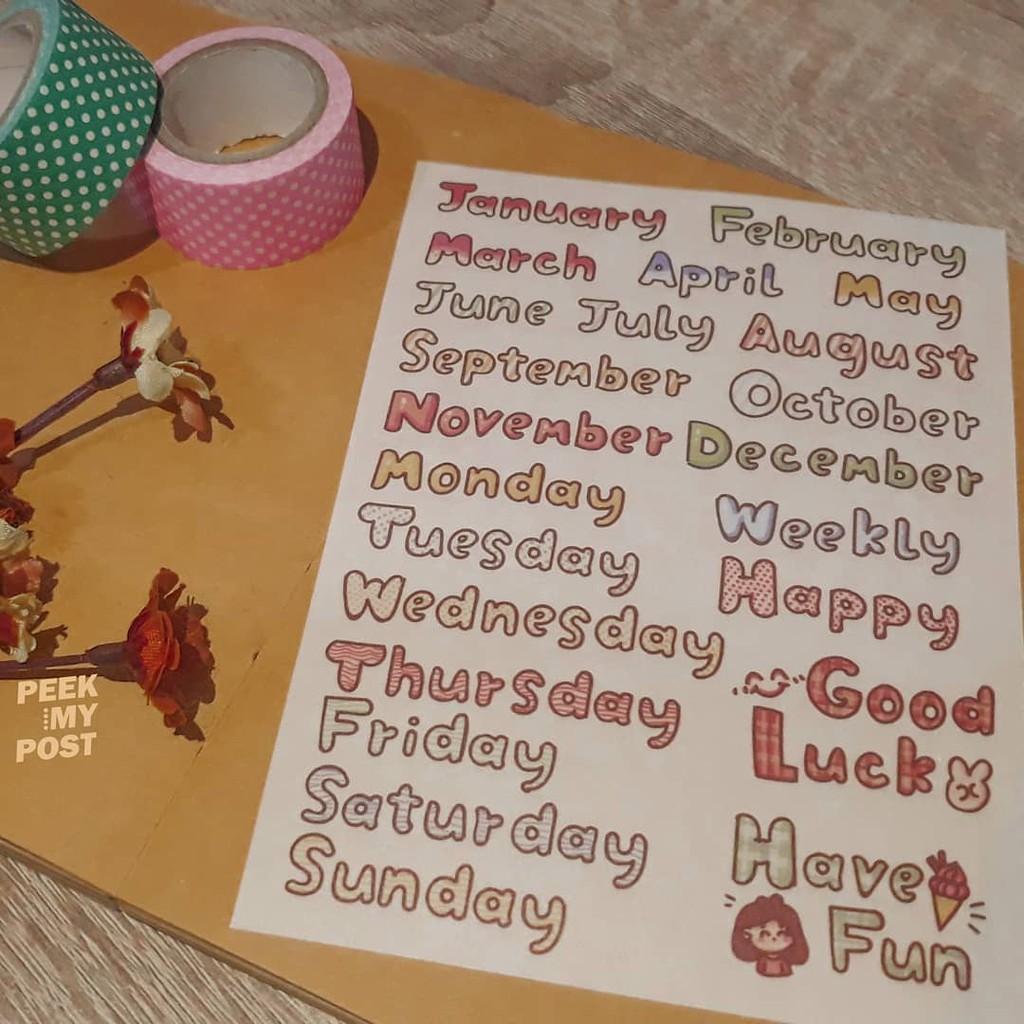 January February
March April May
June July August
September October
November December
Monday
Tuesday
Wednesday
Thursday
Friday
Saturday
Sunday
Weekly
Happy
Good
Luck
Have
Fun
PEEK
MY
POST